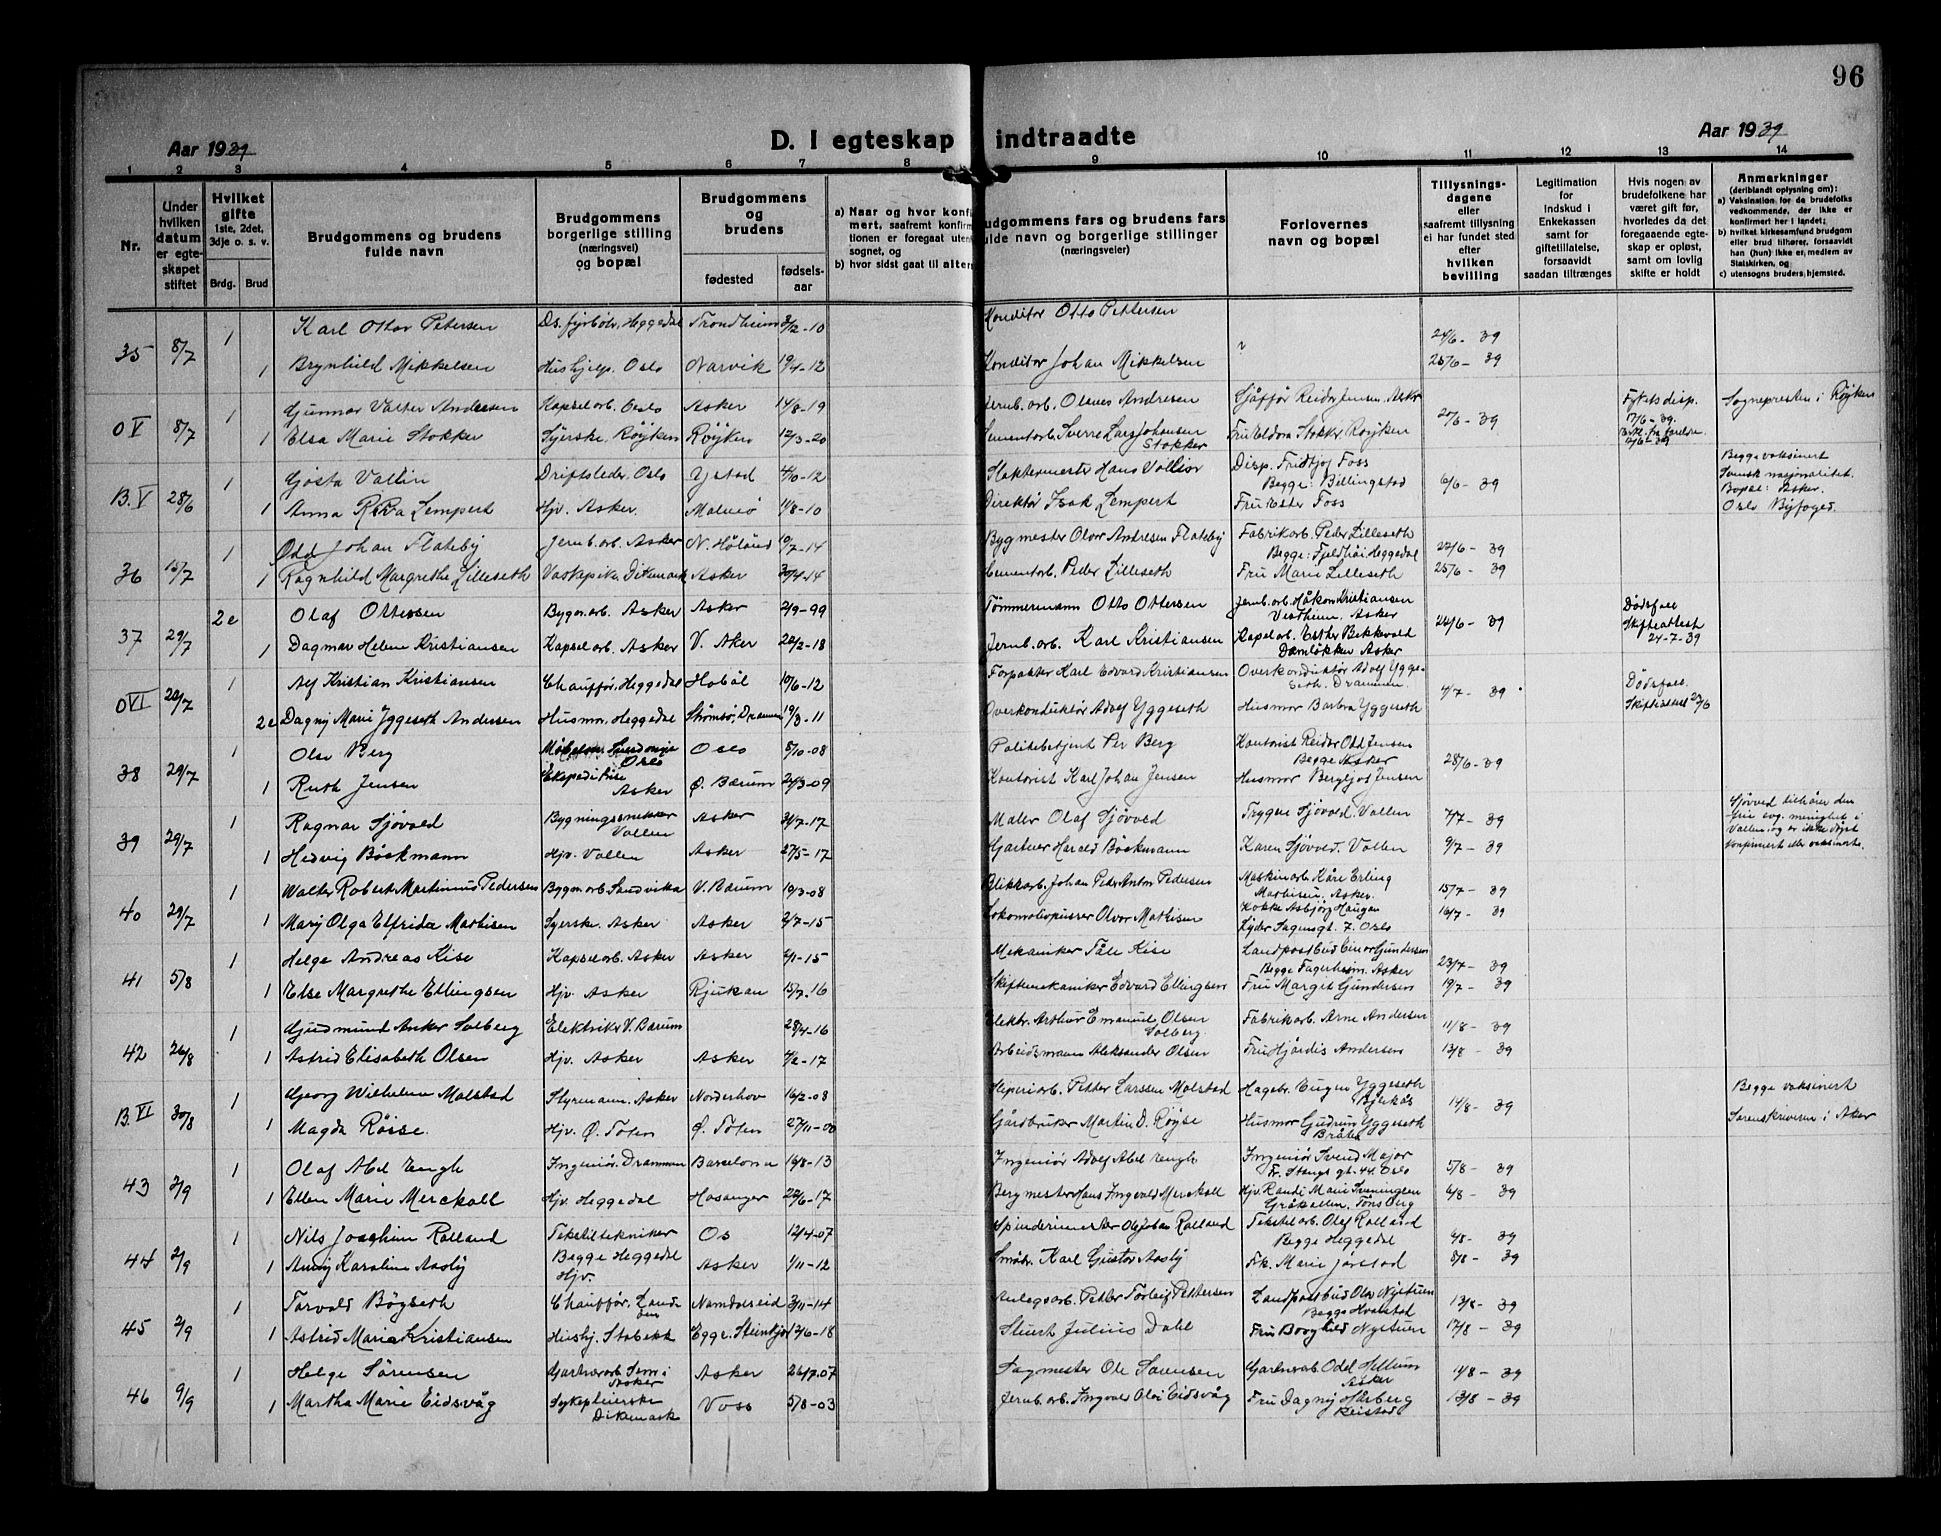 96
D. I egteskap indtraadte
Aar 1939
Aar 1939
1 2 3 4 5 6 7 8 9 10 11 12 13 14
Nr.
Under hvilken datum er egteskapet stiftet
Hvilket gifte 1ste, 2det, 3dje o. s. v.
Brdg. Brud
Brudgommens og brudens fulde navn
Brudgommens borgerlige stilling (næringsvei) og bopæl
Brudgommens og brudens
fødested
fødselsaar
a) Naar og hvor konfi
mert, saafremt konfirm
tionen er foregaat uten
sognet, og
b) hvor sidst gaat til alter
udgommens fars og brudens fars
fulde navn og borgerlige stillinger
(næringsveier)
Forlovernes navn og bopæl
Tillysningsdagene eller saafremt tillysning ei har fundet sted efter hvilken bevilling
Legitimation for Indskud i Enkekassen samt for giftetillatelse, forsaavidt saadan tiltrænges
Hvis nogen av brudefolkene har været gift før, hvorledes da det foregaaende egteskap er opløst, samt om lovlig skifte er holdt
Anmerkninger
(deriblandt oplysning om):
a) Vaksination for de brudefolks vedkommende, der ikke er konfirmert her i landet;
b) hvilket kirkesamfund brudgom eller brud tilhører, forsaavidt han (hun) ikke er medlem av Statskirken, og
c) utensogns bruders hjemsted.
35 8/7 1 Karl Otto Petersen Ds. fyrbøter, Heggedal Trondheim 3/12-10 Konditor Otto Pettersen 24/6-39
1 Brynhild Mikkelsen Hushjelp. Oslo Narvik 19/4-12 Konditor Johan Mikkelsen ? 25/6-39
O V 8/7 1 Gunnar Valter Andersen Kapselarb. Oslo Asker 14/8-19 Jernb. arb. Olaves Andresen Sjåffør Reidar Jensen Asker 27/6-39 Fylkets disp. 17/6-39. Sognepresten i Røyken
1 Elsa Marie Stokker Syerske, Røyken Røyken 12/3-20 Sementarb. Sverre Lars Johansen Stokker Fru Eldora Stokker, Røyken
B. V 28/6 1 Gösta Vallin Driftsleder, Oslo Ystad 4/10-12 Slaktermester Hans Disp. Fridtjof Foss Begge: Billingstad 6/6-39 Begge vaksinert Svensk nasjonalitet. Bopæl: Asker.
1 Anna Lempert Hjv. Asker. Malmø 14/8-10 Direktør Isak Lempert Fru Ester Foss Oslo Byfoged.
36 15/7 1 Odd Johan Flateby Jernb. arb. Asker N. Høland 10/7-14 Bygmester Olav Andresen Flateby Fabrikarb. Peder Lilleseth Begge: Fjeldhøi Heggedal 24/6-39
1 Ragnhild Margrethe Lilleseth Vaskepike, Dikemark Asker 30/4-14 Cementarb. Peder Lilleseth Fru Marie Lilleseth 25/6-39
37 29/7 2e Olaf Ottessen Bygn. arb. Asker Asker 2/9-99 Tømmermann Otto Ottersen Jernb. arb. Håkon Kristiansen Vestheim, Asker 24/6-39 Dødsfall Skifteattest 24-7-39
1 Dagmar Helene Kristiansen Kapselarb. Asker V. Aker 22/2-18 Jernb. arb. Karl Kristiansen Kapselarb. Esther Bekkevold Damløkken Asker
O VI 29/7 1 Alf Kristian Kristiansen Chauffør, Heggedal Hobøl 10/6-12 Forpakter Karl Edvard Kristiansen Overkonduktør Adolf Yggeseth. Drammen. 4/7-39 Dødsfall
2e Dagny Marie Yggeseth Andersen Husmor, Heggedal Strømsø, Drammen 19/3-11 Overkonduktør Adolf Yggeseth Husmor Barbra Yggeseth
38 29/7 1 Olav Berg Oslo Oslo 8/10-08 Politibetjent Per Berg Kontorist Reidar Odd Jensen Begge Asker 28/6-39
1 Ruth Jensen Ekspeditrise Asker Ø. Bærum 24/3-09 Kontorist Karl Johan Jensen Husmor Bergljot Jensen
39 29/7 1 Ragnar Sjøvold Bygningssnekker Vollen Asker 31/7-17 Maler Olaf Sjøvold Trygve Sjøvold. Vollen 7/7-39 Sjøvold tilhører den frie evg. menighet i Vollen og er ikke døpt konfirmert eller vaksinert.
1 Hedvig Böckmann Hjv. Vollen Asker 27/5-17 Gartner Harald Böckmann Karen Sjøvold. Vollen 9/7-39
40 29/7 1 Walter Robert Martinius Pedersen Bygn. arb. Sandvika V. Bærum 19/3-08 Blikkarb. Johan Peder Anton Pedersen Maskinarb. Kåre Erling Mathisen, Asker. 15/7-39
1 Mary Olga Elfrida Mathisen Syerske. Asker Asker 2/7-15 Lokomotivpusser Olvar Mathisen Kokke Asbjørg Haugan Lyder Sagens gt. 7. Oslo 16/7-39
41 5/8 1 Helge Andreas Kise Kapselarb. Asker Asker 4/1-15 Mekaniker Tåle Kise Landpostbud Einar Gundersen Begge Fagerheim. Asker 23/7-39
1 Else Margrethe Ellingsen Hjv. Asker Rjukan 15/7-16 Skiftemekaniker Edvard Ellingsen Fru Margit Gundersen 19/7-39
42 26/8 1 Gudmund Anker Solberg Elektriker V. Bærum 28/4-16 Elektr. Arthur Emanuel Olsen Solberg. Fabrikarb. Arne Andersen 11/8-39
1 Astrid Elisabeth Olsen Hjv. Asker Asker 4/2-17 Arbeidsmann Aleksander Olsen Fru Hjørdis Andersen 13/8-39
B. VI 30/8 1 Georg Wilhelm Molstad Styrmann. Asker Norderhov 16/2-08 Petter Larssen Molstad Hagebr. Eugen Yggeseth Bjerkås 14/8-39 Begge vaksinert
1 Magda Röise. Hjv. Ø. Toten Ø. Toten 27/11-00 Gårdbruker Martin D. Røyse Husmor Gudrun Yggeseth Sorenskriveren i Asker
43 2/9 1 Olaf Abel Engh Ingeniør. Drammen Barselona 16/8-13 Ingeniør Adolf Abel Engh Ingeniør Svend Major Fr. Stangs gt. 44. Oslo 5/8-39
1 Ellen Marie Merckoll Hjv. Heggedal Hosanger 22/6-17 Bergmester Hans Ingvald Merckoll Hjv. Randi Marie Gråkallen, Tønsberg 6/8-39
44 2/9 1 Nils Joachim Rolland Tekstiltekniker Os 12/4-07 Spinderimester Ole Johan Rolland Tekstilarb. Olaf Rolland Begge Heggedal 6/8-39
1 Anny Karoline Aasly Begge Heggedal Hjv. Asker 1/11-12 Småbr. Karl Gustav Aasly Frk. Marie Jørstad 8/8-39
45 2/9 1 Torvald Bøgseth Chauffør. Namdalseid 3/11-14 Anlegsarb. Petter Torleif Pettersen Landpostbud Olav Nyetun Begge Hvalstad 13/8-39
1 Astrid Marie Kristiansen Hushj. Stabekk Egge. Steinkjer 12/6-18 Stuert Julius Dahl Fru Borghild Nyetun 17/8-39
46 9/9 1 Helge Sørensen Gartnerarb. Sem i Asker Asker 26/7-07 Sagmester Ole Sørensen Gartnerarb. Odd Hellum Asker 11/8-39
1 Martha Marie Eidsvåg Sykepleierske Dikemark Voss 5/8-03 Jernb. arb. Ingvar Olai Eidsvåg Fru Dagny Hårberg Reistad 13/8-39